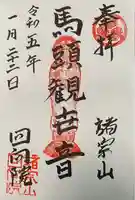 奉拝
諸宗山
馬頭観世音
回向院
令和五年
一月二十二日